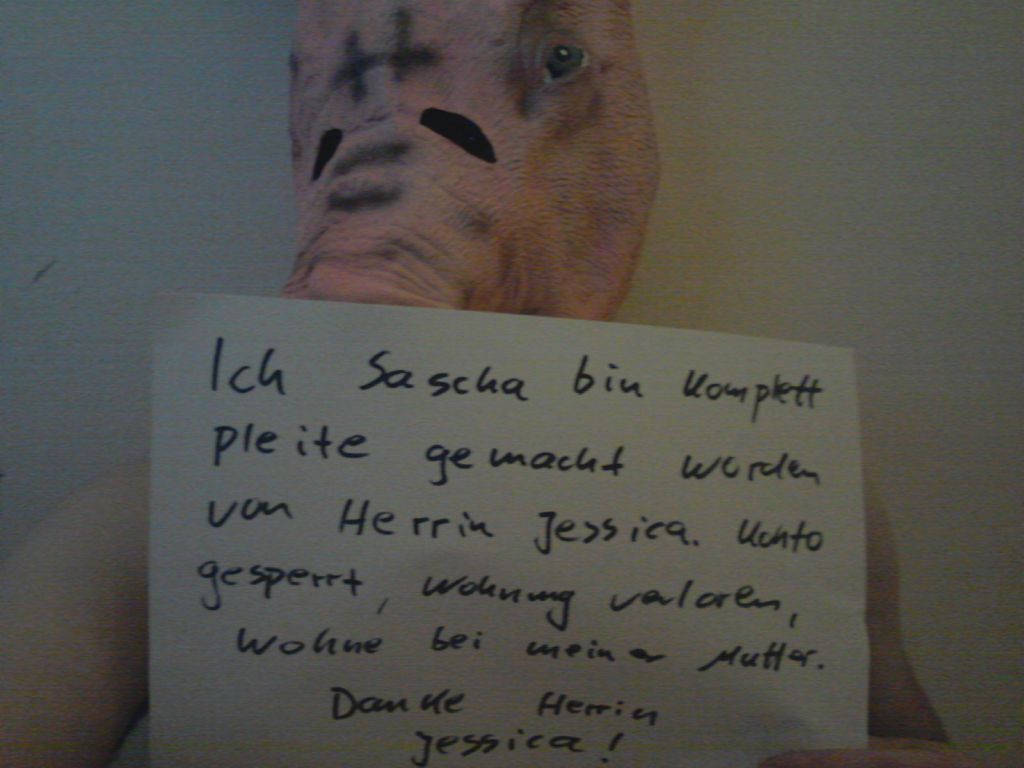 Ich Sascha bin komplett
pleite gemacht worden
von Herrin Jessica. Konto
gesperrt, Wohnung verloren,
Wohne bei meiner Mutter.
Danke Herrin
Jessica!